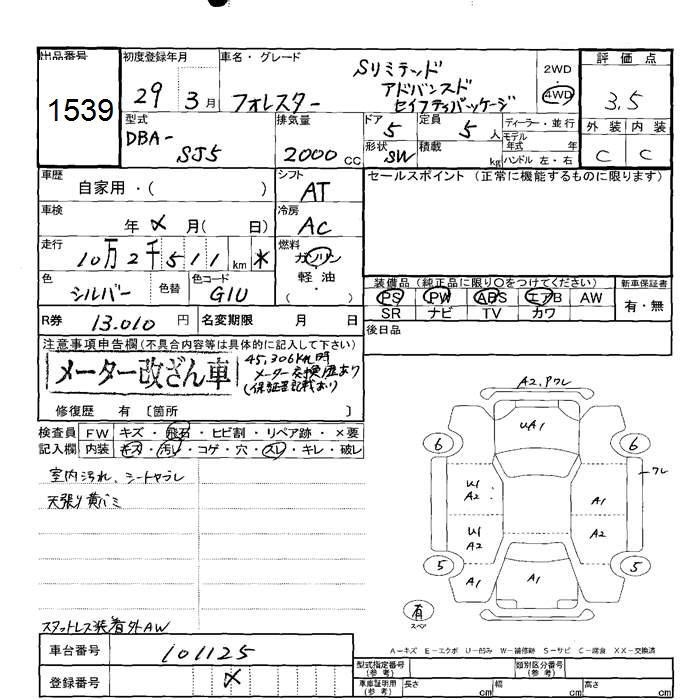 出品番号 初度登録年月 車名・グレード 評価点
1539 29 3月 フォレスター Sリミテッド アドバンスド セイフティパッケージ 2WD 4WD 3.5
型式 排気量 ドア 定員 ディーラー・並行 外装 内装
DBA- SJ5 2000cc 5 5人 モデル年式 年 C C
形状 SW 積載 kg ハンドル 左・右
車歴 シフト セールスポイント (正常に機能するものに限ります)
自家用・( ) AT
車検 冷房
年 メ 月( 日) AC
走行 燃料
10万2千511km * ガソリン
軽・油
・( )
色 色替 色コード 装備品 (純正品に限り○をつけてください) 新車保証書
シルバー G1U PS PW ABS エアB AW 有・無
SR ナビ TV カワ
R券 13.010円 名変期限 月 日 後日品
注意事項申告欄(不具合内容等は具体的に記入して下さい)
メーター改ざん車 45,306km時
メーター交換歴あり
(保証書記載あり)
修復歴 有 〔箇所 〕
検査員 FW キズ・飛石・ヒビ割・リペア跡・×要
記入欄 内装 キズ・汚レ・コゲ・穴・スレ・キレ・破レ
室内汚れ、シートヤブレ
天張り黄バミ
A2.Pワレ
UA1
6 6
ワレ
U1
A2 A1
U1
A2 A1
5 5
A1 A1
有
スペア
スタットレス装着外AW
A−キズ E−エクボ U−凹み W−補修跡 S−サビ C−腐食 XX−交換済
車台番号 101125 型式指定番号(参考) 類別区分番号(参考)
登録番号 メ 車庫証明用(参考) 長さ cm 幅 cm 高さ cm